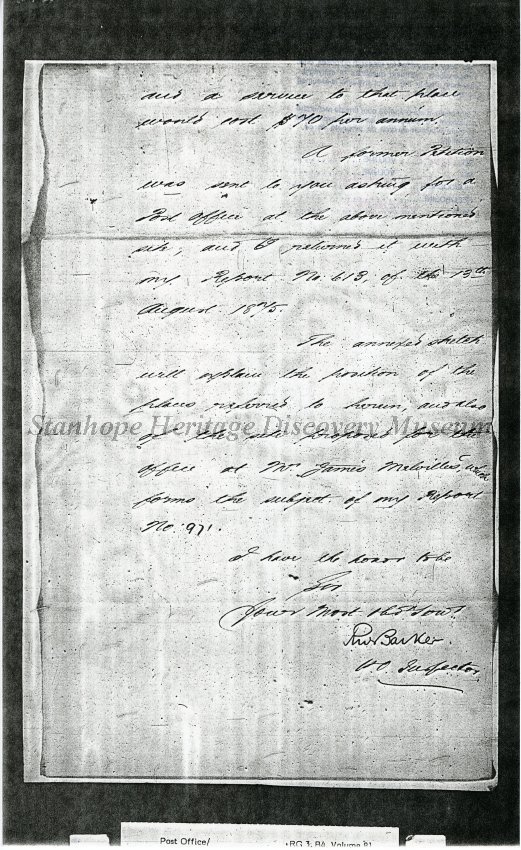 and a service to that place
would cost $70 per annum.
A former Petition
was sent to you asking for a
Post Office at the above mentioned
site, and I returned it with
my Report No. 613, of the 13th
August 1875.
The annexed sketch
will explain the position of the
places referred to herein, and also
of the site proposed for the
Stanhope Heritage Discovery Museum
office at Mr James Melville's, which
forms the subject of my Report
No. 971.
I have the honor to be
Sir
Your Most Obt Servt
Barker.
P O Inspector.
Post Office/
RG 3, 84, Volume 91